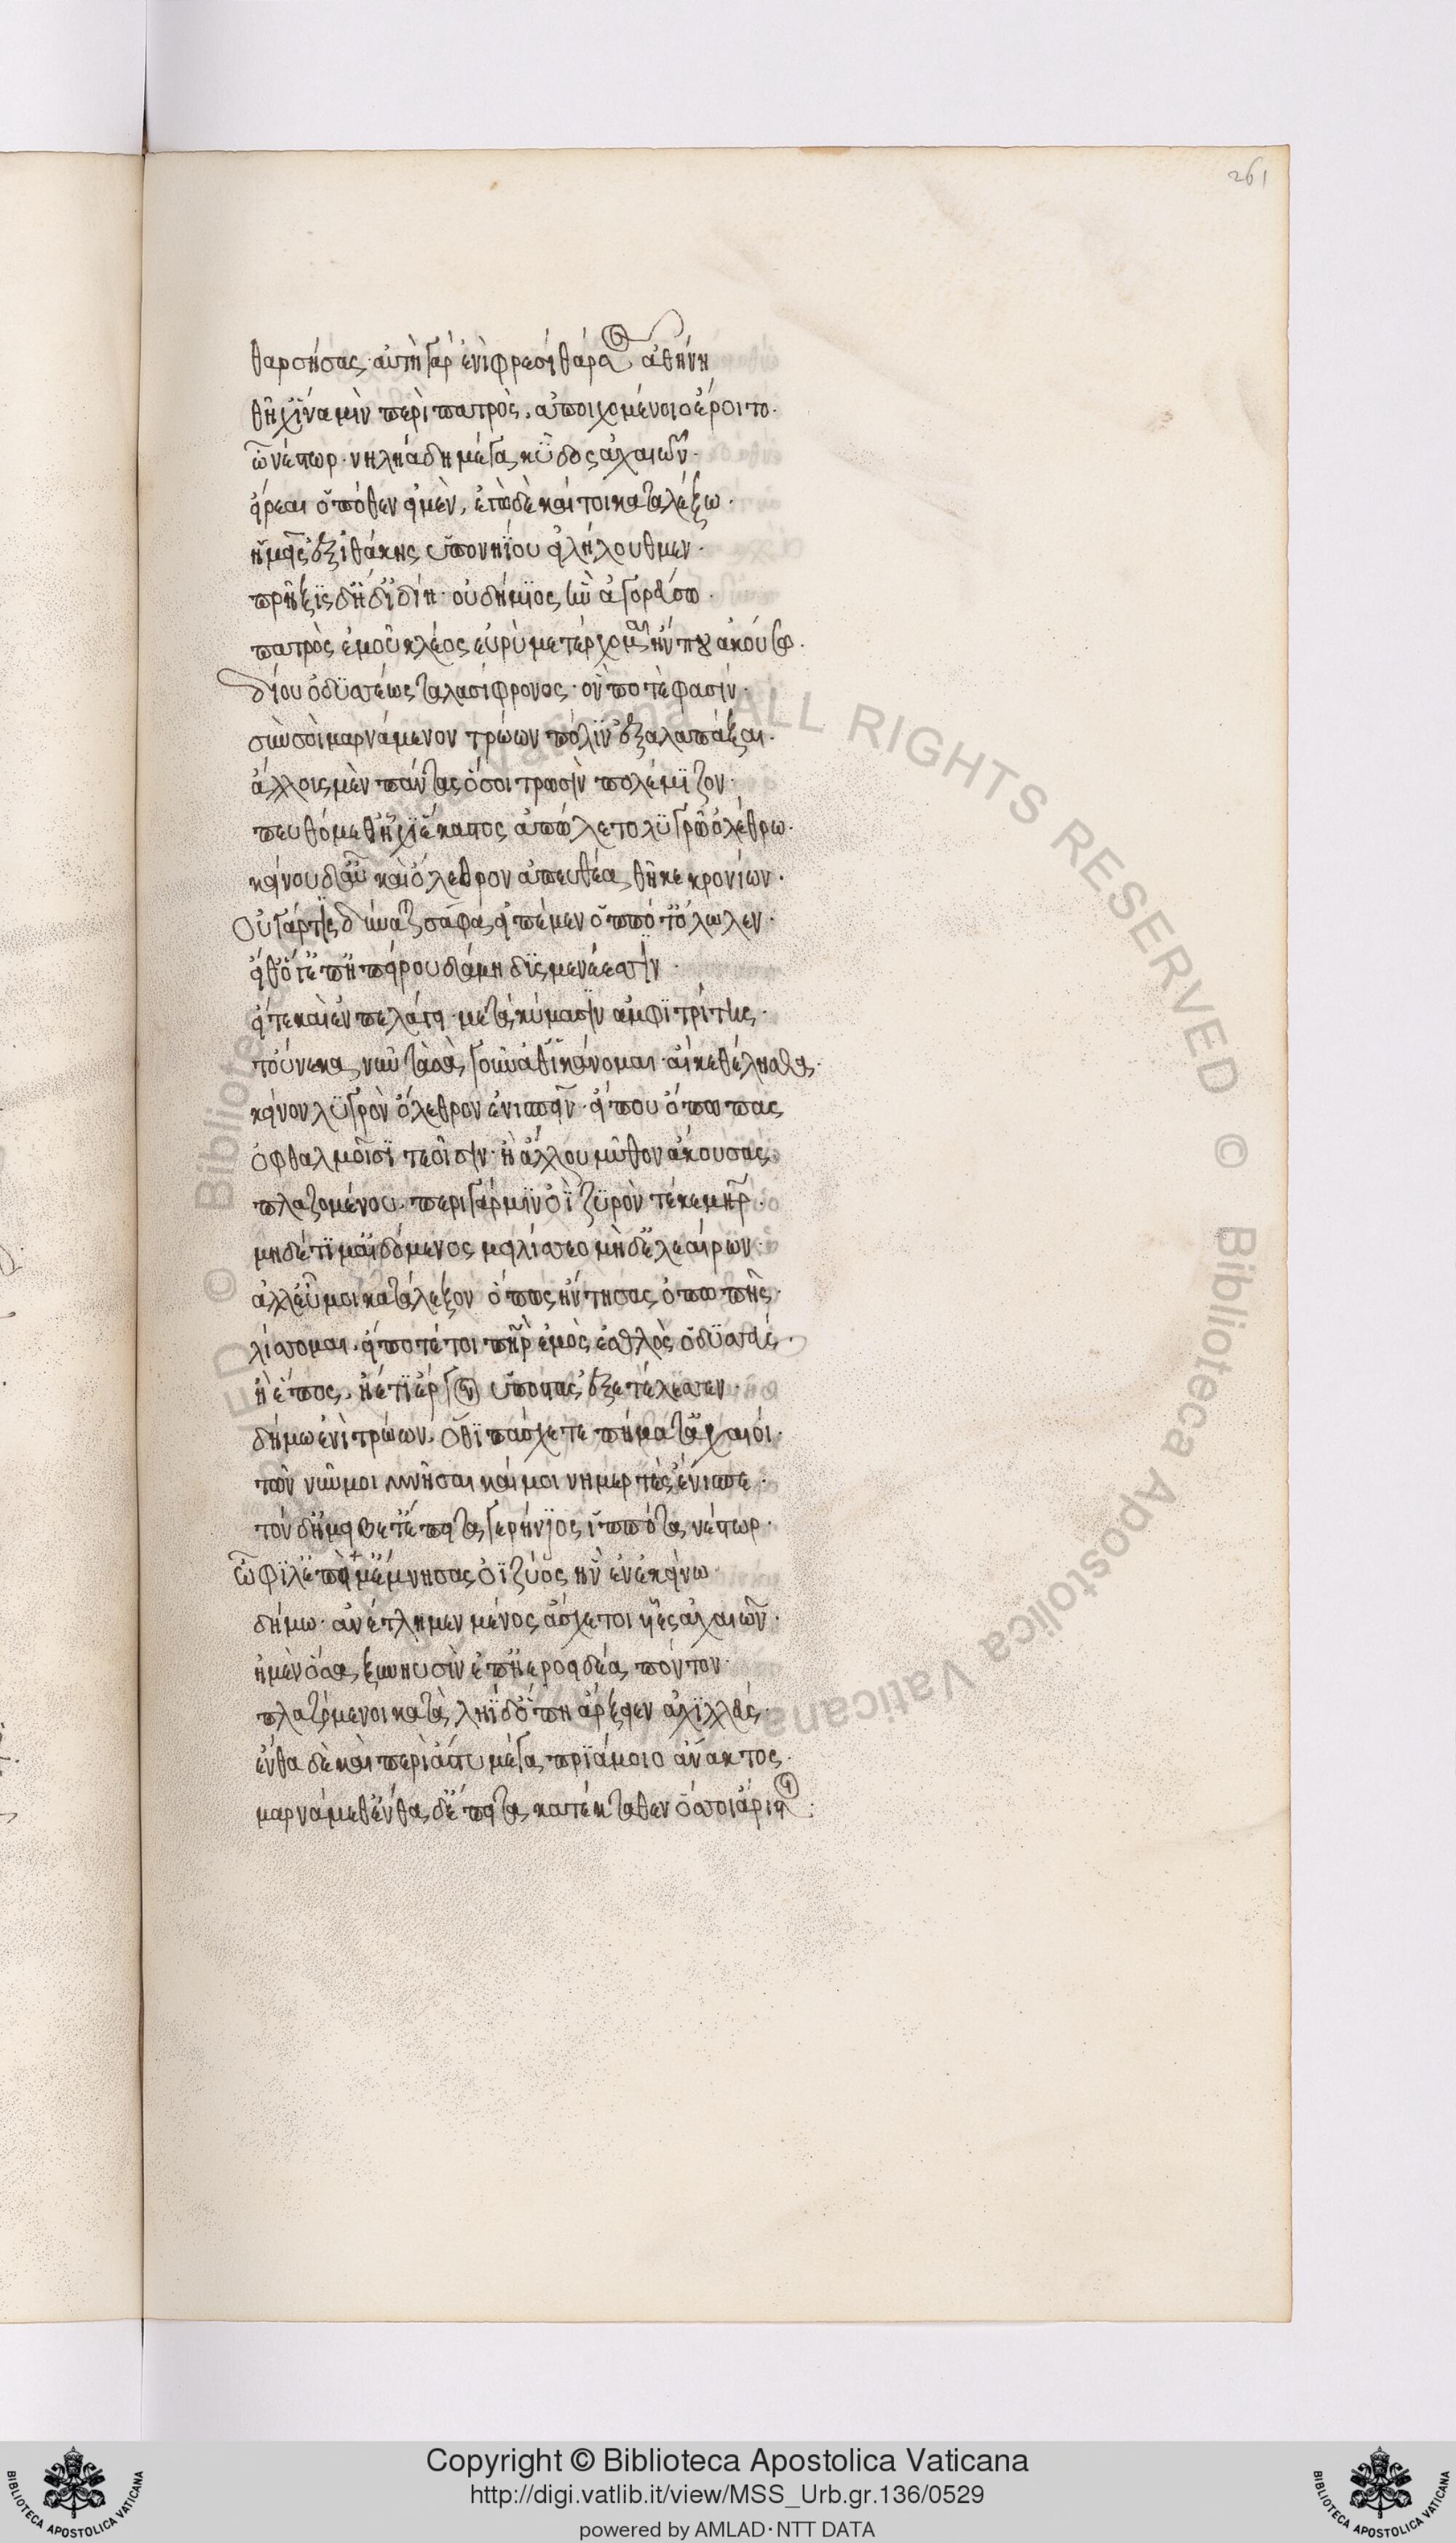 261
θαρσήσας· αὐτὴ γὰρ ἐνὶ φρεσὶ θάρσος ἀθήνη
θῆχ ἵνα μιν περὶ πατρὸς, ἀποιχομένοιο ἔροιτο·
ὦ νέστωρ· νηληϊάδη μέγα κῦδος ἀχαιῶν·
εἴρεαι ὁππόθεν εἰμὲν, ἐγὼ δὲ καί τοι καταλέξω·
ἡμεῖς ἐξ ἰθάκης ὑπονηΐου εἰλήλουθμεν·
πρῆξις δ' ἥδ' ἰδίη· οὐ δήμιος ἣν ἀγορεύσω·
πατρὸς ἐμοῦ κλέος εὐρὺ μετέρχομαι ἤν που ἀκούσω·
δίου ὀδυσσέως ταλασίφρονος· ὅν ποτέ φασιν·
σὺν σοὶ μαρνάμενον τρώων πόλιν ἐξαλαπάξαι·
ἄλλους μὲν πάντας ὅσοι τρωσὶν πολέμιζον·
πευθόμεθ ἧχι ἕκαστος ἀπώλετο λυγρῷ ὀλέθρω·
κείνου δ' αὖ καὶ ὄλεθρον ἀπευθέα θῆκε κρονίων·
οὐ γάρ τις δύναται σάφα εἰπέμεν ὁππόθ' ὄλωλεν·
εἴθ' ὅγ' ἐπ' ἠπείρου δάμη ἀνδράσι δυσμενέεσσιν·
εἴτε καὶ ἐν πελάγει· μετὰ κύμασιν ἀμφιτρίτης·
τούνεκα νῦν τὰ σὰ γούναθ' ἱκάνομαι· αἴ κε θέλησθα·
κείνου λυγρὸν ὄλεθρον ἐνισπεῖν· εἴ που ὄπωπας
ὀφθαλμοῖσι τεοῖσιν· ἢ ἄλλου μῦθον ἄκουσας
πλαζομένου· περὶ γάρ μιν ὀϊζυρὸν τέκε μῆηρ·
μηδέ τί μ' αἰδόμενος μειλίσσεο μηδ' ἐλεαίρων·
ἀλλ' εὖ μοι κατάλεξον ὅπως ἤντησας ὀπωπῆς·
λίσσομαι· εἴ ποτέ τοι πῆρ ἐμὸς ἐσθλὸς ὀδυσσεύς·
ἢ ἔπος, ἠέ τι ἔργον ὑποστὰς ἐξετέλεσσεν·
δήμω ἐνὶ τρώων, ὅθι πάσχετε πήματ' ἀχαιοί·
τῶν νῦν μοι μνῆσαι καί μοι νημερτὲς ἔνισπε·
τὸν δ' ἠμείβετ' ἔπειτα γερήνιος ἱππότα νέστωρ·
ὦ φίλ' ἐπεί μ' ἔμνησας ὀϊζύος ἣν ἐν ἐκείνω
δήμω· ἀνέτλημεν μένος ἄσχετοι υἷες ἀχαιῶν·
ἠμὲν ὅσα ξὺν νηυσὶν ἐπ' ἠεροειδέα πόντον·
πλαζόμενοι κατὰ ληΐδ' ὅπη ἄρξειεν ἀχιλλεύς·
ἔνθα δὲ καὶ περὶ ἄστυ μέγα πριάμοιο ἄνακτος·
μαρνάμεθ' ἔνθα δ' ἔπειτα κατέκταθεν ὅσσοι ἄριστοι·
Copyright © Biblioteca Apostolica Vaticana
http://digi.vatlib.it/view/MSS_Urb.gr.136/0529
powered by AMLAD·NTT DATA